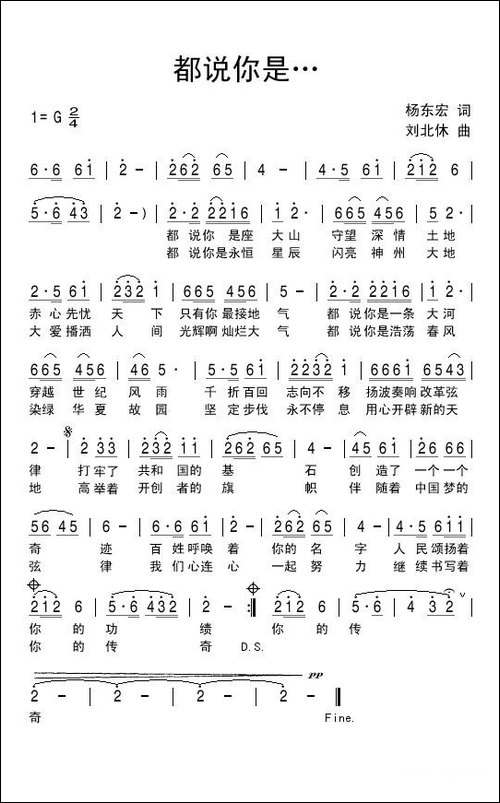 都说你是…
1=G 2/4
杨东宏 词
刘北休 曲
6·6 61 | 2 - | 262 65 | 4 - | 4·5 61 | 212 6 |
5·6 43 | 2 - ) | 2·2 2216 | 1 2· | 665 456 | 5 2· |
都 说你 是座 大山 守望 深 情 土地
都 说你是永恒 星辰 闪亮 神 州 大地
2·5 61 | 232 1 | 665 456 | 5 2· | 2·2 2216 | 1 2· |
赤 心先忧 天 下 只有你 最接地 气 都 说你是一条 大河
大 爱播洒 人 间 光辉啊 灿烂大 气 都 说你是浩荡 春风
665 456 | 5 2· | 2·5 61 | 2232 1 | 2·1 61 | 6543 |
穿越 世 纪 风 雨 千 折百回 志向不 移 扬波奏响 改革弦
染绿 华 夏 故 园 坚 定步伐 永不停 息 用心开辟 新的天
2 - | 2 33 | 232 11 | 262 65 | 4 - | 45 61 | 26 66 |
律 打牢了 共和 国的 基 石 创 造了 一个一个
地 高举着 开创 者的 旗 帜 伴 随着 中国梦的
56 45 | 6 - | 6·6 61 | 2 - | 262 65 | 4 - | 4·5 61 |
奇 迹 百 姓呼唤 着 你的 名 字 人 民颂扬着
弦 律 我 们心连 心 一起 努 力 继 续书写着
212 6 | 5·6 432 | 2 - :| 212 6 | 5·6 | 4 3 2 |
你的 功 绩 你的 传
你的 传 奇 D.S.
pp
2 - | 2 - | 2 - | 2 - | 2 - ‖
奇 Fine.